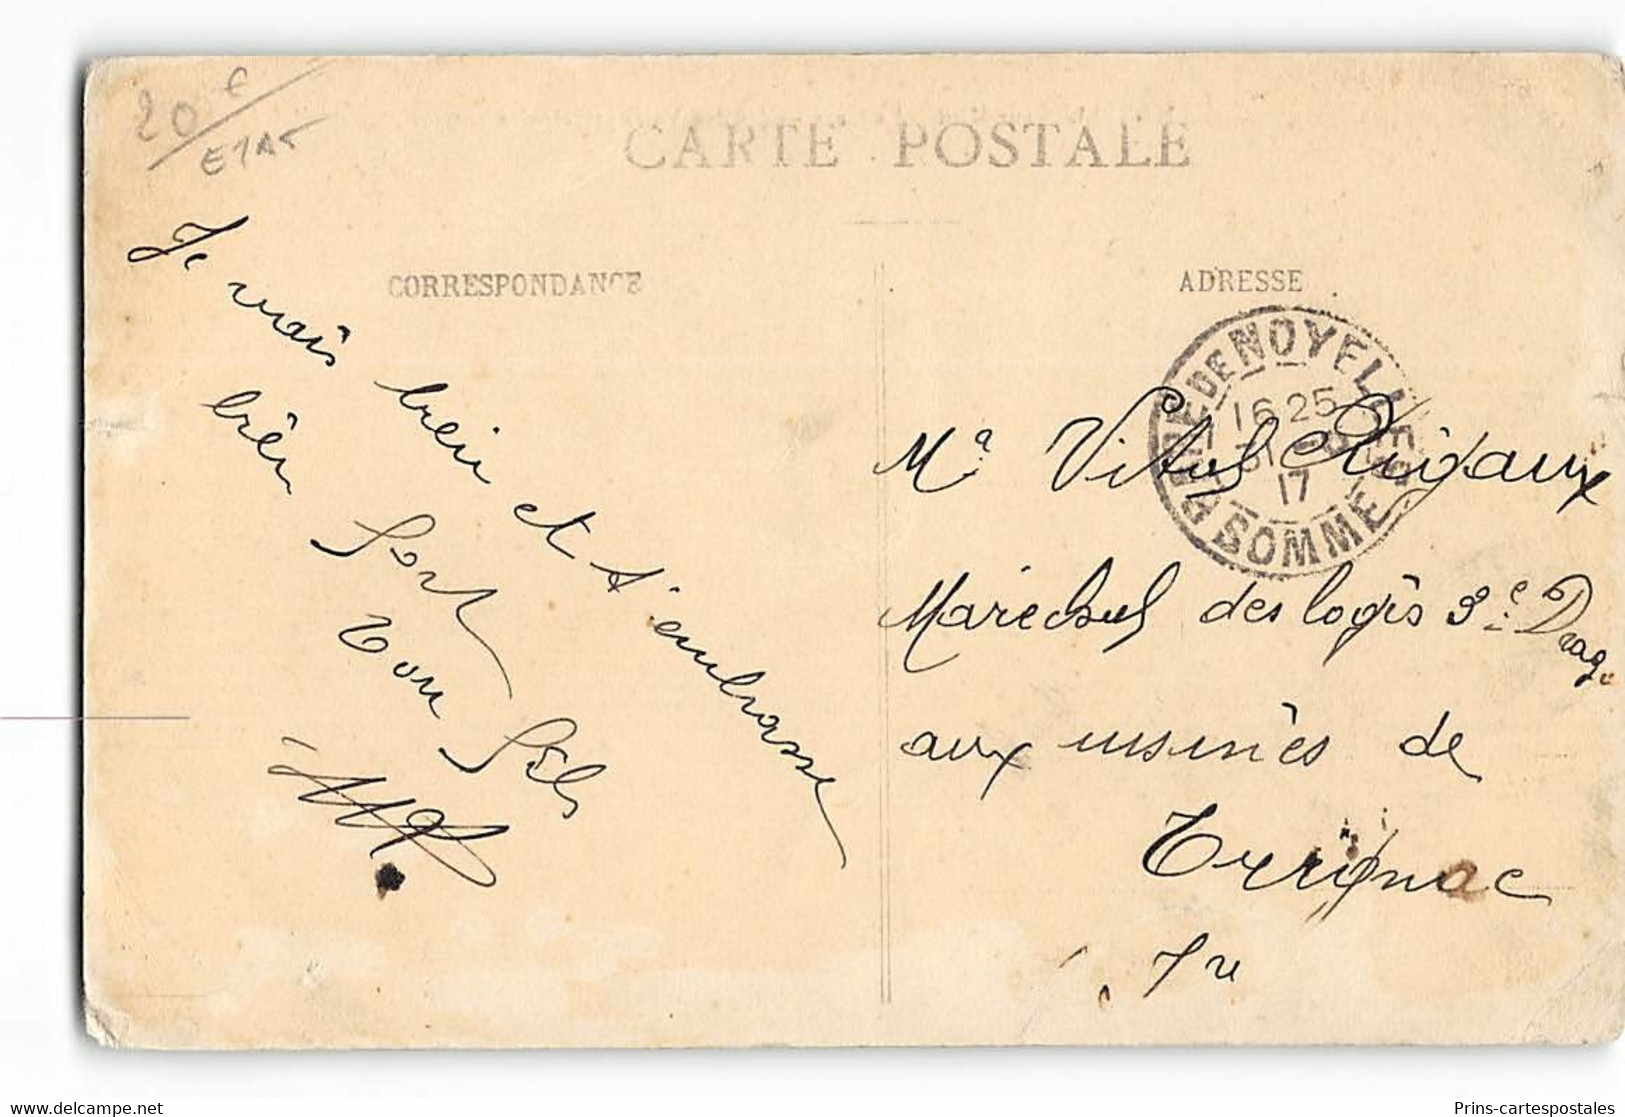 20 €
ETAT
CARTE POSTALE
CORRESPONDANCE
ADRESSE
Je vais bien et t'embrasse
bien fort
Ton fils
GARE DE NOYELLES
16 25
31
17
SOMME
Mr Vital Rigaux
Marechal des logis 3e Drag.
aux usines de
Treignac
delcampe.net
Prins-cartespostales